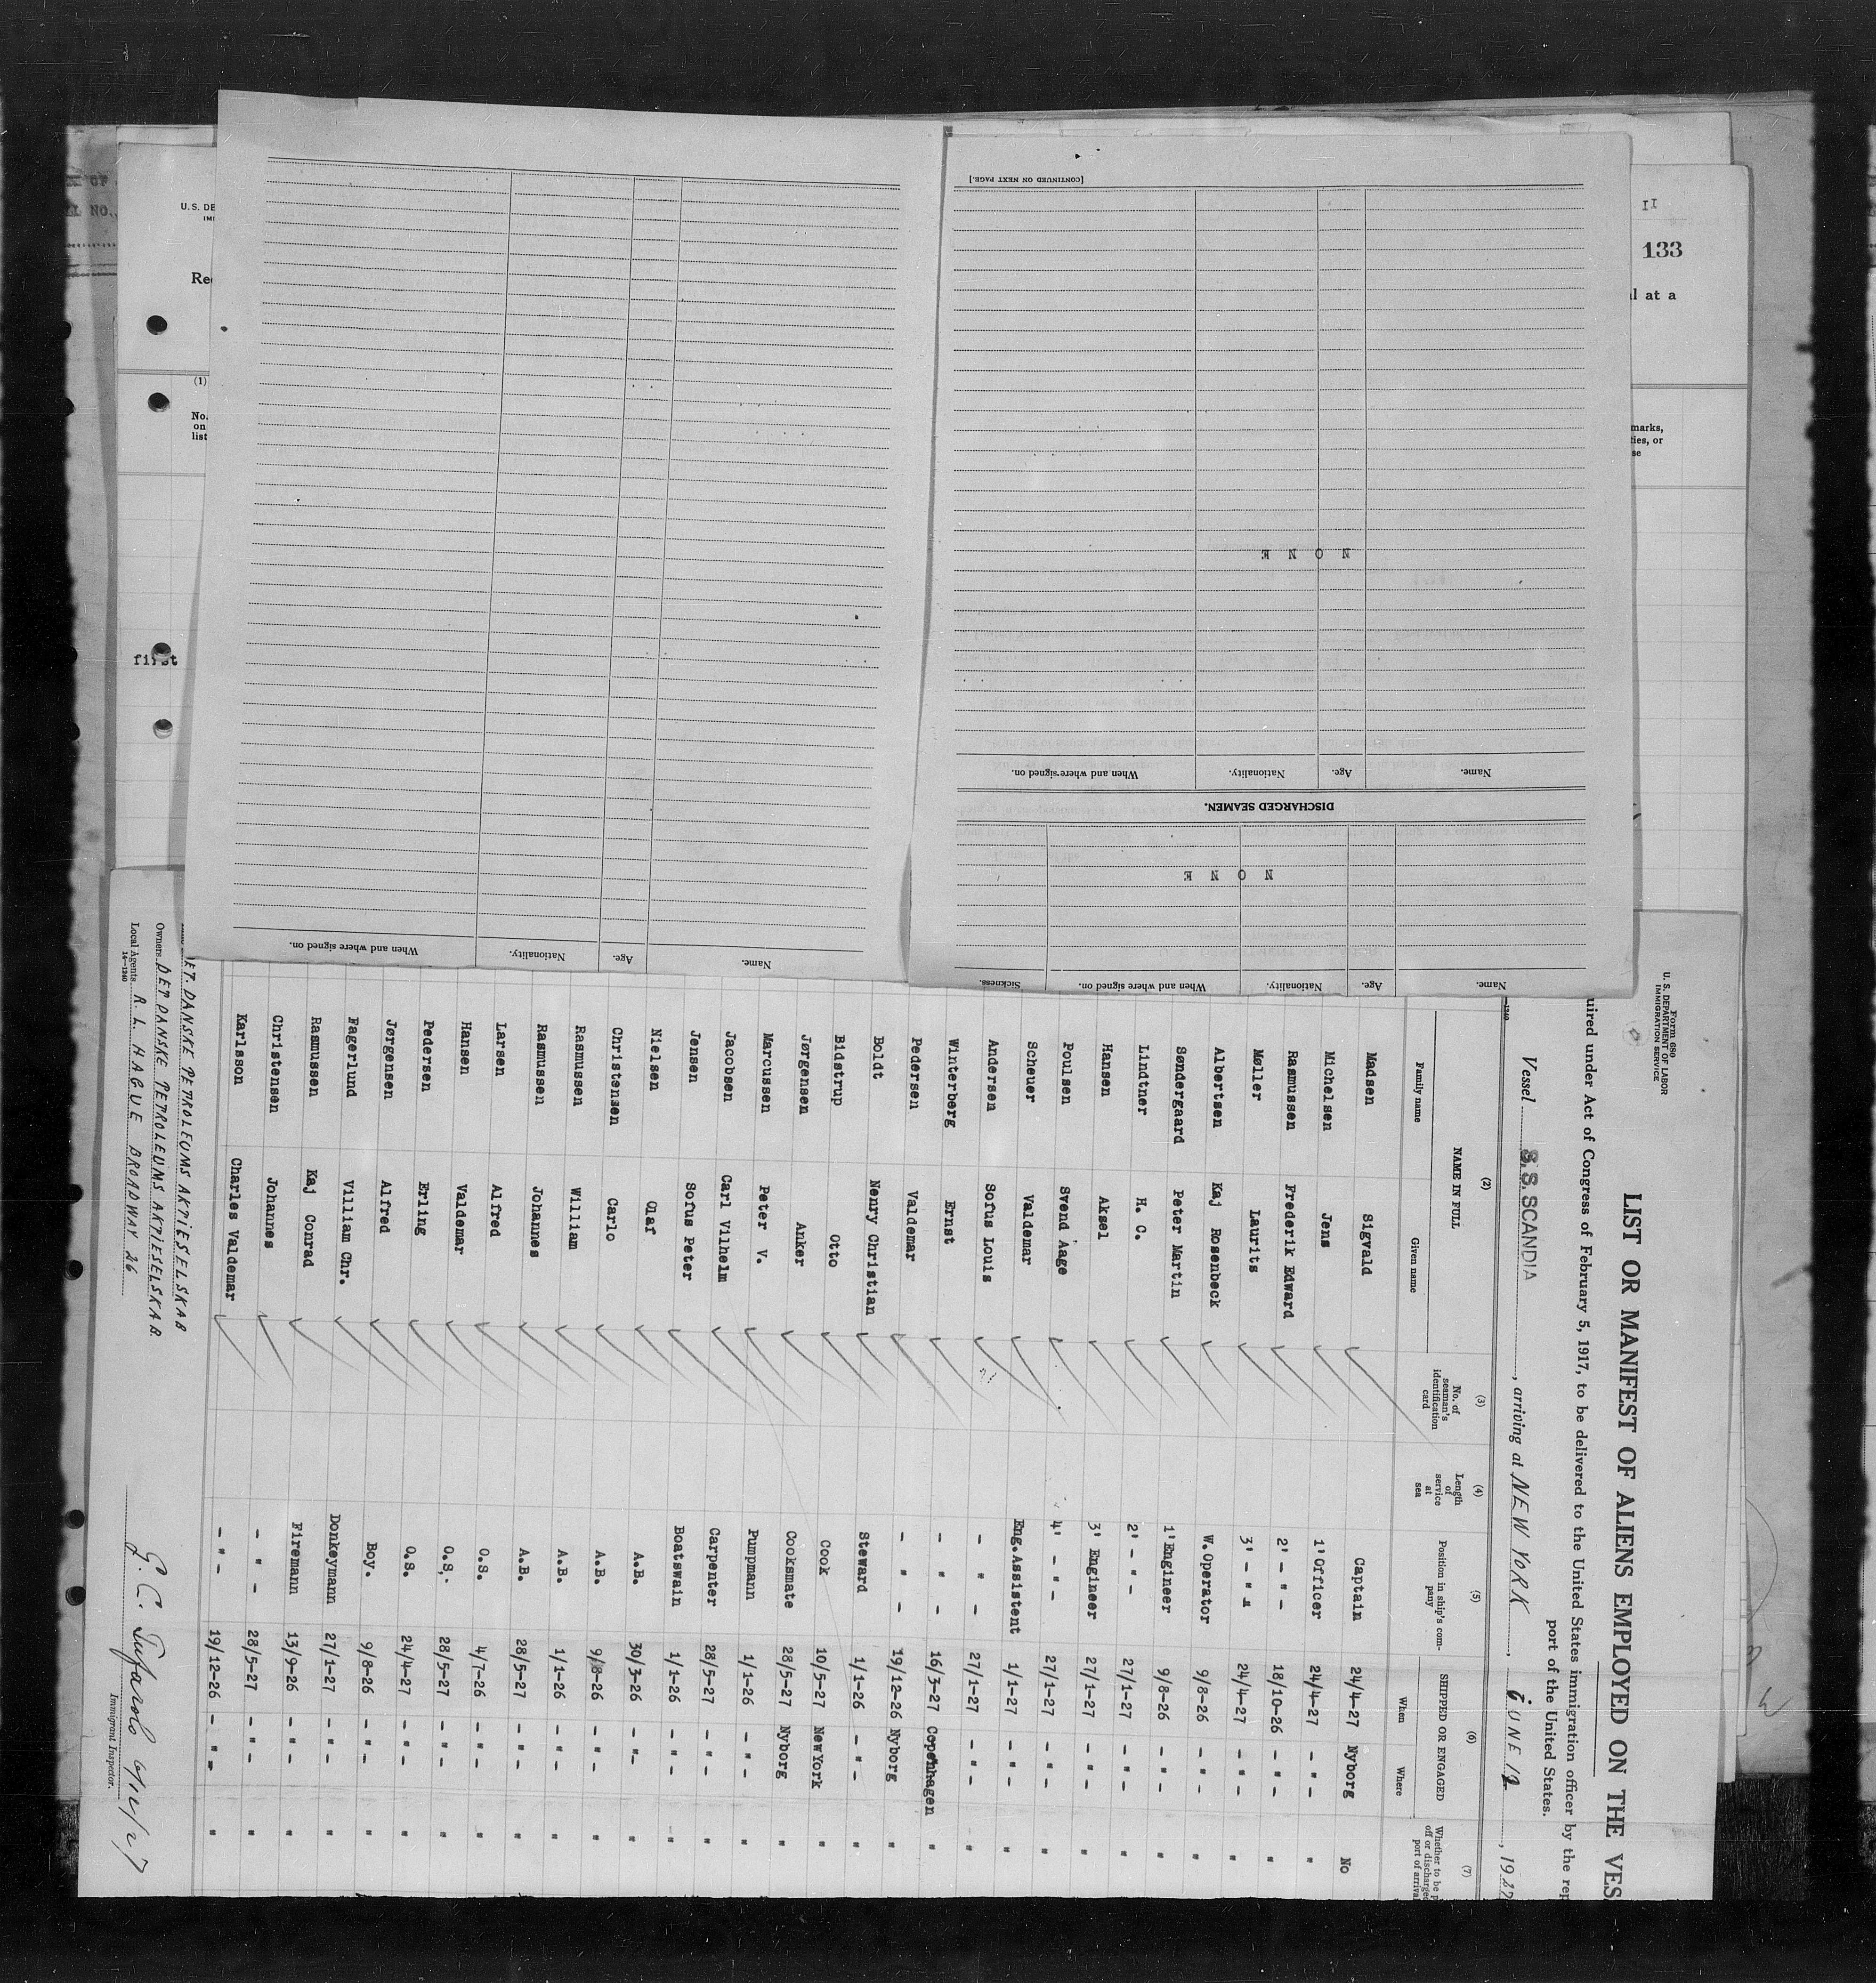 U.S. DE
IMM
Rec
(1)
No.
on
list
first
II
133
l at a
marks,
ties, or
se
[CONTINUED ON NEXT PAGE.]
N O N E
Name. Age. Nationality. When and where signed on.
DISCHARGED SEAMEN.
N O N E
Name. Age. Nationality. When and where signed on. Sickness.
Name. Age. Nationality. When and where signed on.
Form 680
U. S. DEPARTMENT OF LABOR
IMMIGRATION SERVICE
LIST OR MANIFEST OF ALIENS EMPLOYED ON THE VES
uired under Act of Congress of February 5, 1917, to be delivered to the United States immigration officer by the rep
port of the United States.
Vessel S. S. SCANDIA, arriving at NEW YORK, JUNE 12, 1927
(2) (3) (4) (5) (6) (7)
NAME IN FULL No. of seaman's identification card Length of service at sea Position in ship's company SHIPPED OR ENGAGED Whether to be p off or discharged port of arrival
Family name Given name When Where
Madsen Sigvald Captain 24/4-27 Nyborg No
Michelsen Jens 1'Officer 24/4-27 - " - "
Rasmussen Frederik Edward 2' - " - 18/10-26 - " - "
Møller Laurits 3' - " - 24/4-27 - " - "
Albertsen Kaj Rosenbeck W.Operator 9/8-26 - " - "
Søndergaard Peter Martin 1'Engineer 9/8-26 - " - "
Lindtner H. C. 2' - " - 27/1-27 - " - "
Hansen Aksel 3' Engineer 27/1-27 - " - "
Poulsen Svend Aage 4' - " - 27/1-27 - " - "
Scheuer Valdemar Eng.Assistent 1/1-27 - " - "
Andersen Sofus Louis - " - 27/1-27 - " - "
Winterberg Ernst - " - 16/3-27 Copenhagen "
Pedersen Valdemar - " - 19/12-26 Nyborg "
Boldt Henry Christian Steward 1/1-26 - " - "
Bidstrup Otto Cook 10/5-27 NewYork "
Jørgensen Anker Cooksmate 28/5-27 Nyborg "
Marcussen Peter V. Pumpmann 1/1-26 - " - "
Jacobsen Carl Vilhelm Carpenter 28/5-27 - " - "
Jensen Sofus Peter Boatswain 1/1-26 - " - "
Nielsen Olaf A.B. 30/3-26 - "- "
Christensen Carlo A.B. 9/8-26 - " - "
Rasmussen William A.B. 1/1-26 - " - "
Rasmussen Johannes A.B. 28/5-27 - " - "
Larsen Alfred O.S. 4/7-26 - " - "
Hansen Valdemar O.S,. 28/5-27 - " - "
Pedersen Erling O.S. 24/4-27 - " - "
Jørgensen Alfred Boy. 9/8-26 - " - "
Fagerlund Villiam Chr. Donkeymann 27/1-27 - " - "
Rasmussen Kaj Conrad Firemann 13/9-26 - " - "
Christensen Johannes - " - 28/5-27 - " - "
Karlsson Charles Valdemar - " - 19/12-26 - " - "
ET. DANSKE PETROLEUMS AKTIESELSKAB
Owners DET DANSKE PETROLEUMS AKTIESELSKAB.
Local Agents R. L. HAGUE BROADWAY 26
14—1240
Immigrant Inspector.